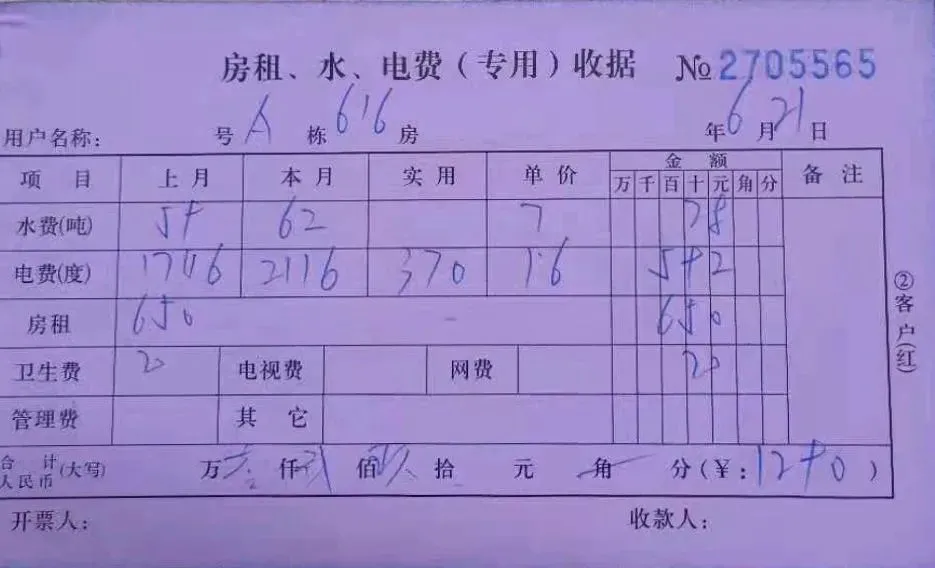 房租、水、电费(专用)收据 № 2705565
用户名称: 号 A 栋 616 房 年 6 月 21 日
项 目 上月 本月 实用 单价 金额 备注
万 千 百 十 元 角 分
水费(吨) 62 7 28
电费(度) 1746 2116 370 1.6 592
房租 650 650
卫生费 20 电视费 网费 20
管理费 其它
合 计 人民币 (大写) 万 壹 仟 贰 佰 玖 拾 元 角 分 (¥: 1290 )
开票人: 收款人:
②客户(红)